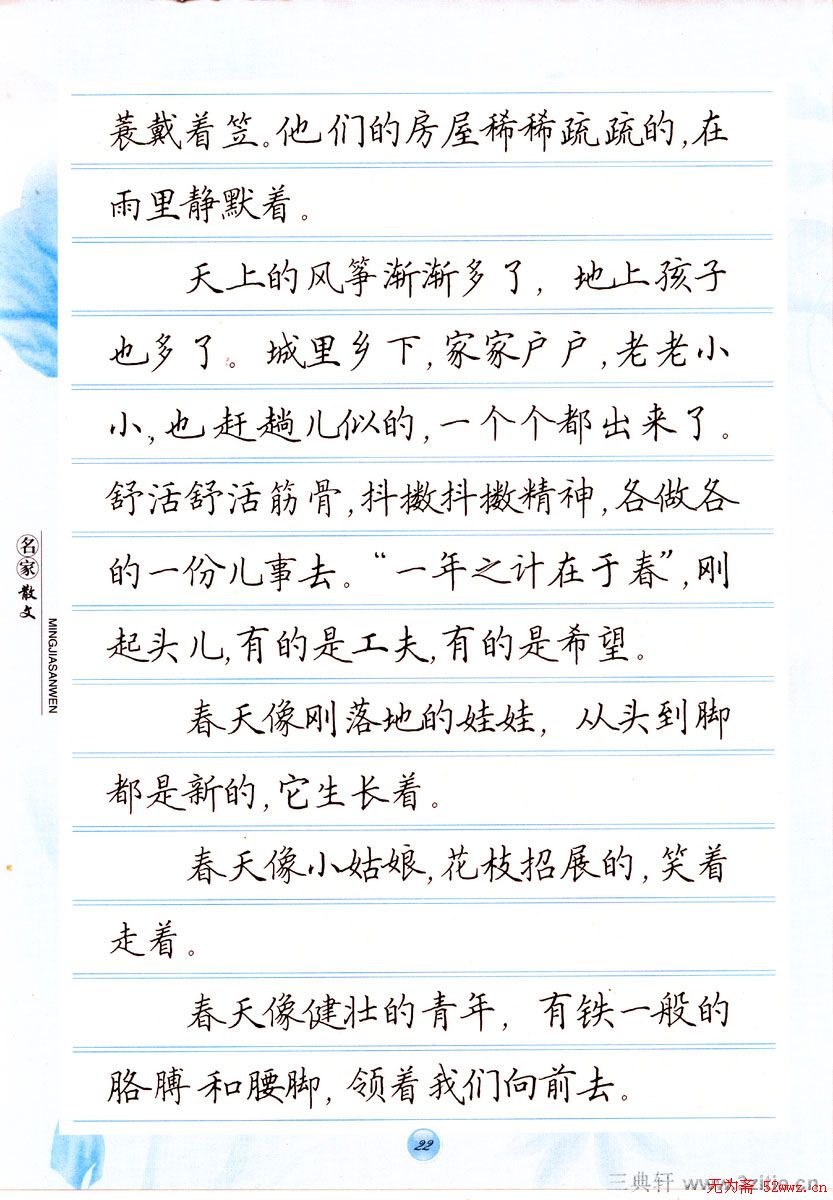 蓑戴着笠。他们的房屋稀稀疏疏的,在
雨里静默着。
天上的风筝渐渐多了，地上孩子
也多了。城里乡下,家家户户,老老小
小,也赶趟儿似的,一个个都出来了。
舒活舒活筋骨,抖擞抖擞精神,各做各
的一份儿事去。“一年之计在于春”,刚
起头儿,有的是工夫,有的是希望。
春天像刚落地的娃娃，从头到脚
都是新的,它生长着。
春天像小姑娘,花枝招展的,笑着
走着。
春天像健壮的青年，有铁一般的
胳膊和腰脚,领着我们向前去。
名家散文
MINGJIASANWEN
22
三典轩
无为斋 52wwz.cn